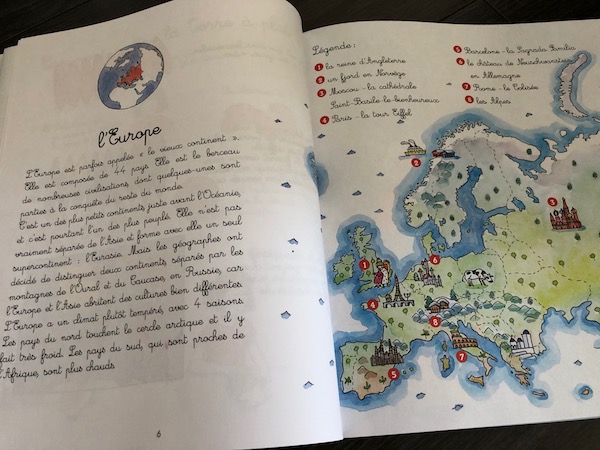 l'Europe
L'Europe est parfois appelée « le vieux continent ».
Elle est composée de 44 pays. Elle est le berceau
de nombreuses civilisations dont quelques-unes sont
parties à la conquête du reste du monde.
C'est un des plus petits continents juste avant l'Océanie,
et c'est pourtant l'un des plus peuplé. Elle n'est pas
vraiment séparée de l'Asie et forme avec elle un seul
supercontinent : l'Eurasie. Mais les géographes ont
décidé de distinguer deux continents, séparés par les
montagnes de l'Oural et du Caucase, en Russie, car
l'Europe et l'Asie abritent des cultures bien différentes.
L'Europe a un climat plutôt tempéré, avec 4 saisons.
Les pays du nord touchent le cercle arctique et il y
fait très froid. Les pays du sud, qui sont proches de
l'Afrique, sont plus chauds.
6
Légende :
1 la reine d'Angleterre
2 un fjord en Norvège
3 Moscou - la cathédrale
Saint-Basile-le-bienheureux
4 Paris - la tour Eiffel
5 Barcelone - la Sagrada Familia
6 le château de Neuschwanstein
en Allemagne
7 Rome - le Colisée
8 les Alpes
2
3
1
6
4
8
7
5